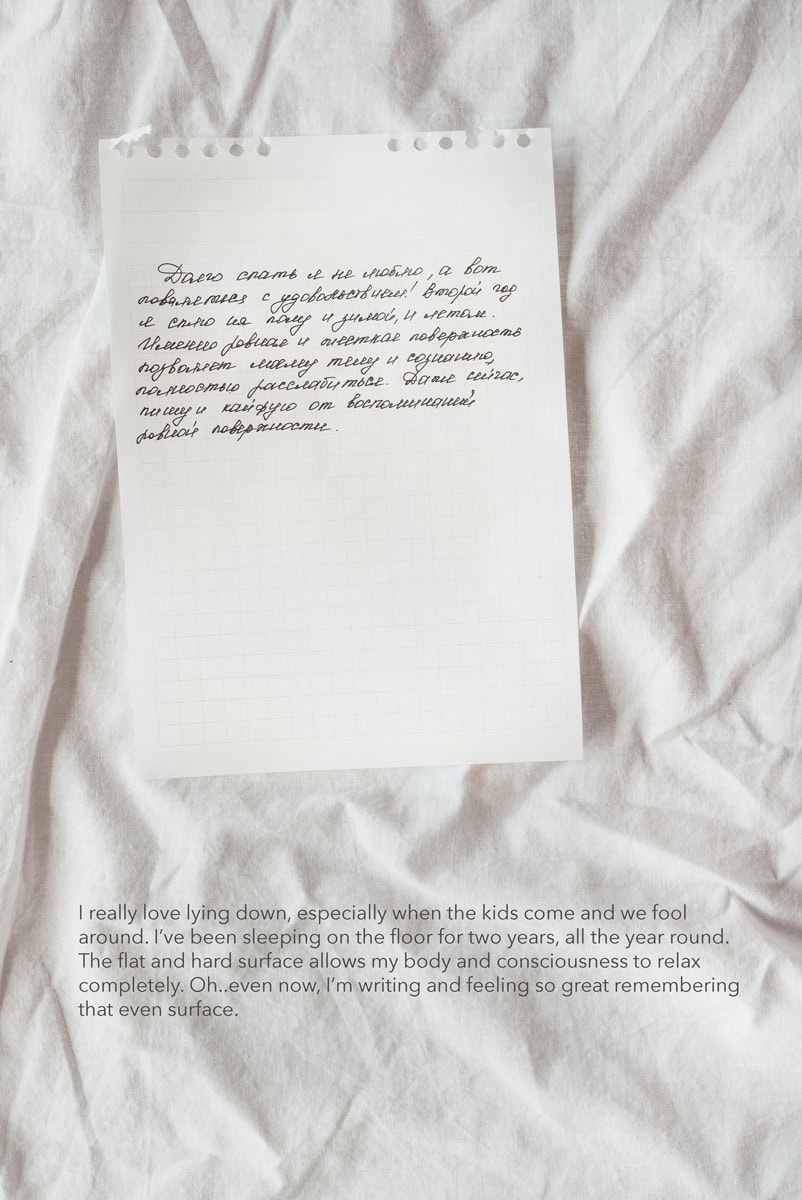 Долго спать я не люблю, а вот
поваляться с удовольствием! Второй год
я сплю на полу и зимой, и летом.
Именно ровная и жесткая поверхность
позволяет моему телу и сознанию,
полностью расслабиться. Даже сейчас,
пишу и кайфую от воспоминаний
ровной поверхности.
I really love lying down, especially when the kids come and we fool
around. I’ve been sleeping on the floor for two years, all the year round.
The flat and hard surface allows my body and consciousness to relax
completely. Oh..even now, I’m writing and feeling so great remembering
that even surface.